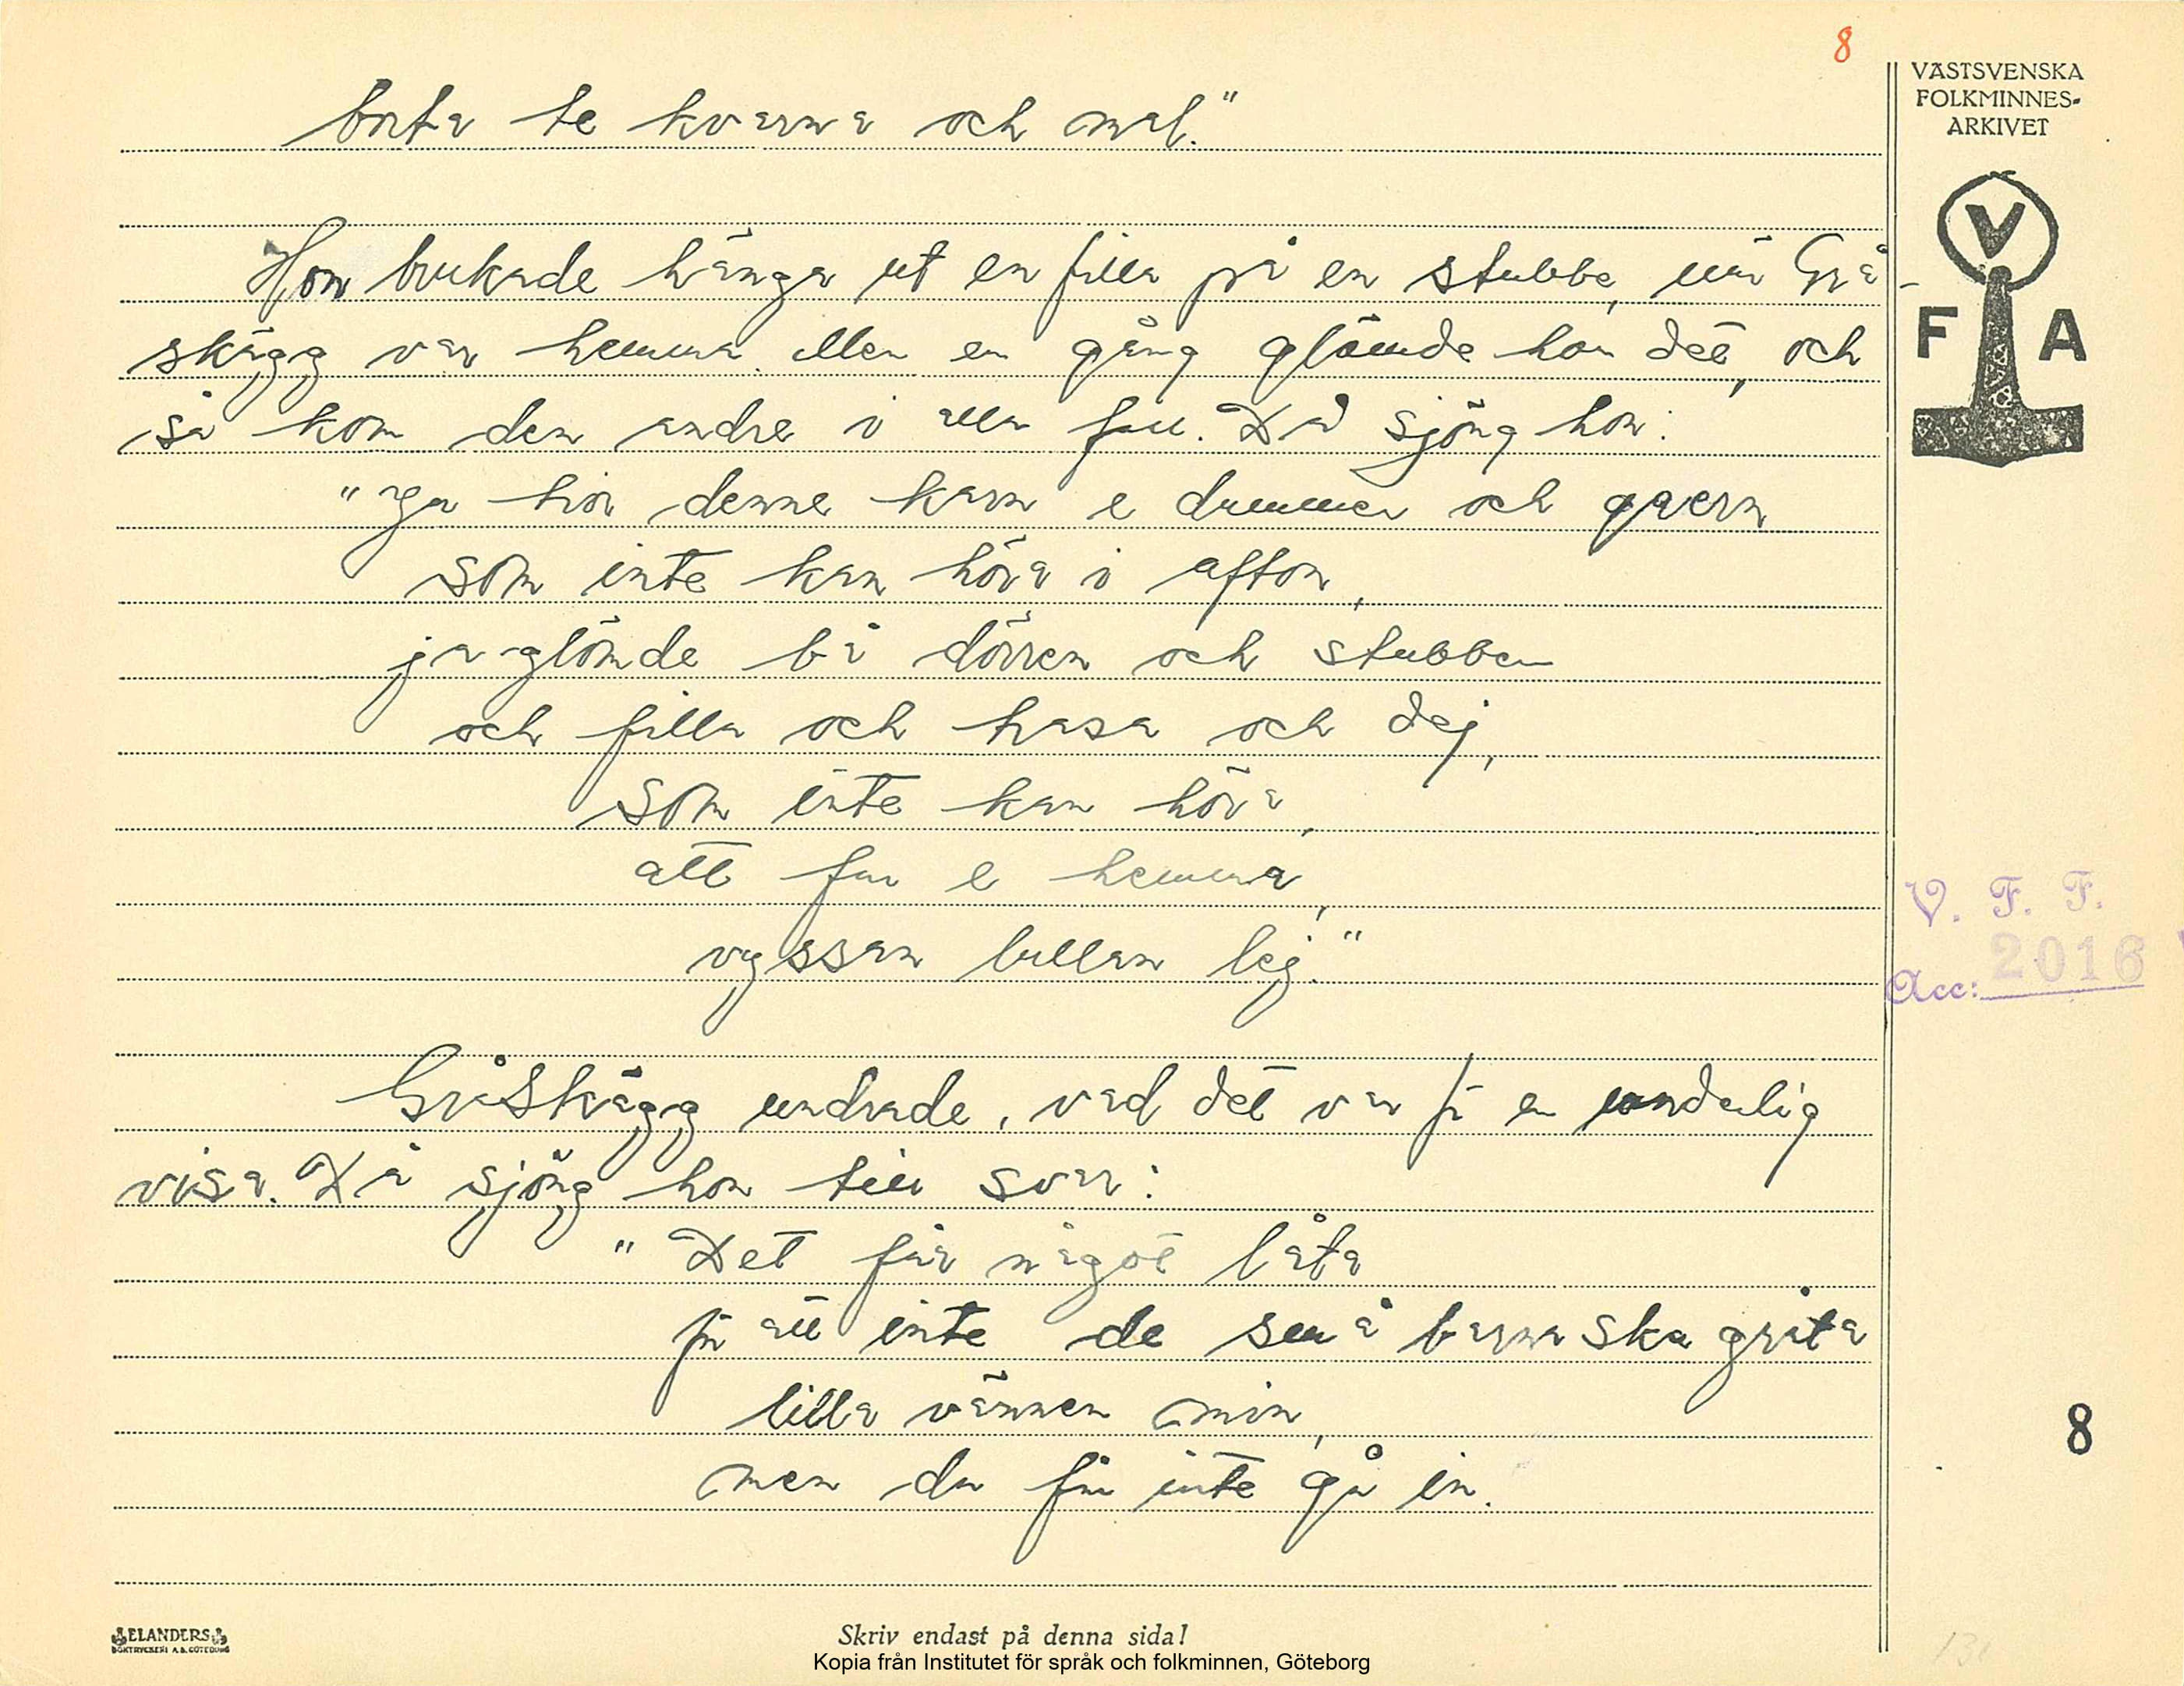 8
VÄSTSVENSKA
FOLKMINNES-
ARKIVET
V
F A
borta te kvarna och mal."
Hon brukade hänga ut en filla på en stubbe, när Grå-
skägg var hemma. Men en gång glömde hon det, och
så kom den andre i alla fall. Då sjöng hon:
"Ja hör denne karn e dummer och gaern
som inte kan höra i afton,
ja glömde bå dörren och stubben
och filla och hasa och dej,
som inte kan höra,
att far e hemma,
vyssan lullan lej."
V. F. F.
Acc: 2016
Gråskägg undrade, vad det var för en underlig
visa. Då sjöng hon till svar:
"Det får något låta
för att inte de små barna ska gråta
lilla vännen min,
men du får inte gå in.
8
ELANDERS
BOKTRYCKERI A.B. GÖTEBORG
Skriv endast på denna sida!
Kopia från Institutet för språk och folkminnen, Göteborg